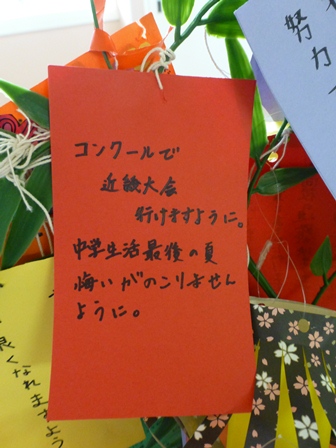 コンクールで
近畿大会
行けますように。
中学生活最後の夏
悔いがのこりません
ように。
努力
良くなれますよう